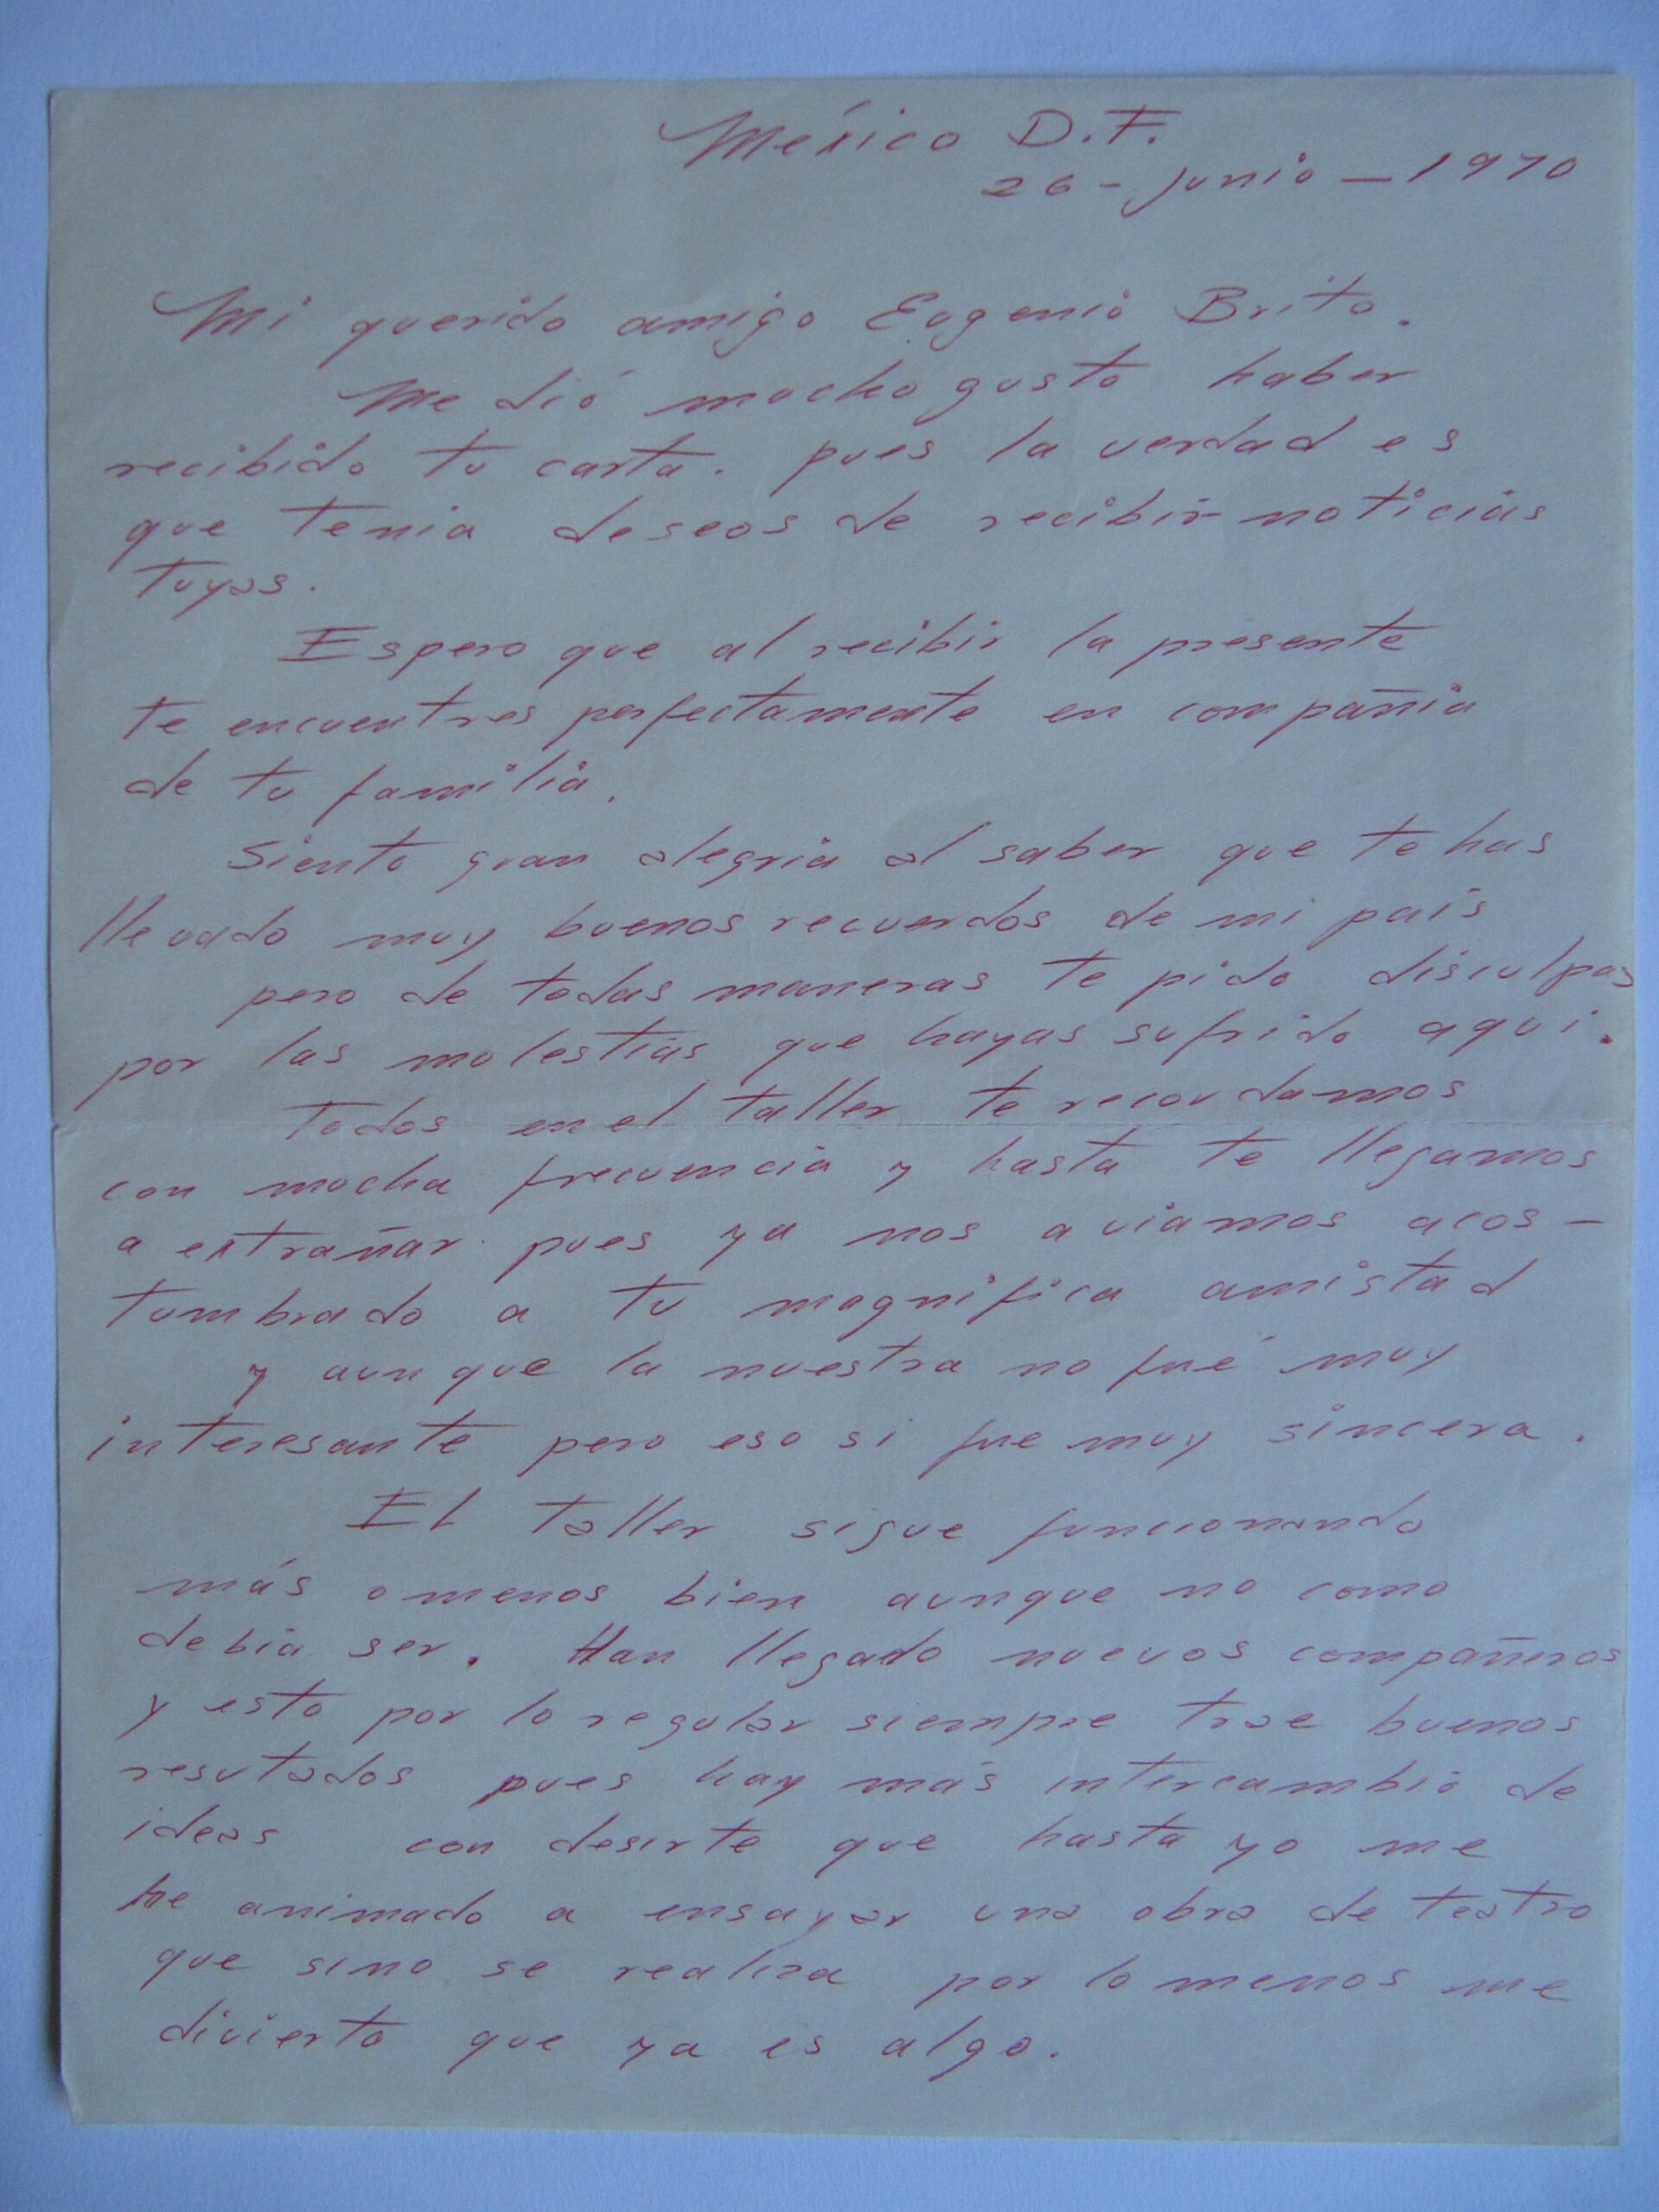 México D.F.
26 - junio - 1970
Mi querido amigo Eugenio Brito.
Me dió mucho gusto haber
recibido tu carta. pues la verdad es
que tenia deseos de recibir noticias
tuyas.
Espero que al recibir la presente
te encuentres perfectamente en compañia
de tu familia.
Siento gran alegria al saber que te has
llevado muy buenos recuerdos de mi pais
pero de todas maneras te pido disculpas
por las molestias que hayas sufrido aqui.
Todos en el taller te recordamos
con mucha frecuencia y hasta te llegamos
a extrañar pues ya nos aviamos acos-
tumbrado a tu magnifica amistad
y aunque la nuestra no fué muy
interesante pero eso si fue muy sincera.
El taller sigue funcionando
más o menos bien aunque no como
debia ser. Han llegado nuevos compañeros
y esto por lo regular siempre trae buenos
resutados pues hay más intercambio de
ideas con desirte que hasta yo me
he animado a ensayar una obra de teatro
que sino se realiza por lo menos me
divierto que ya es algo.